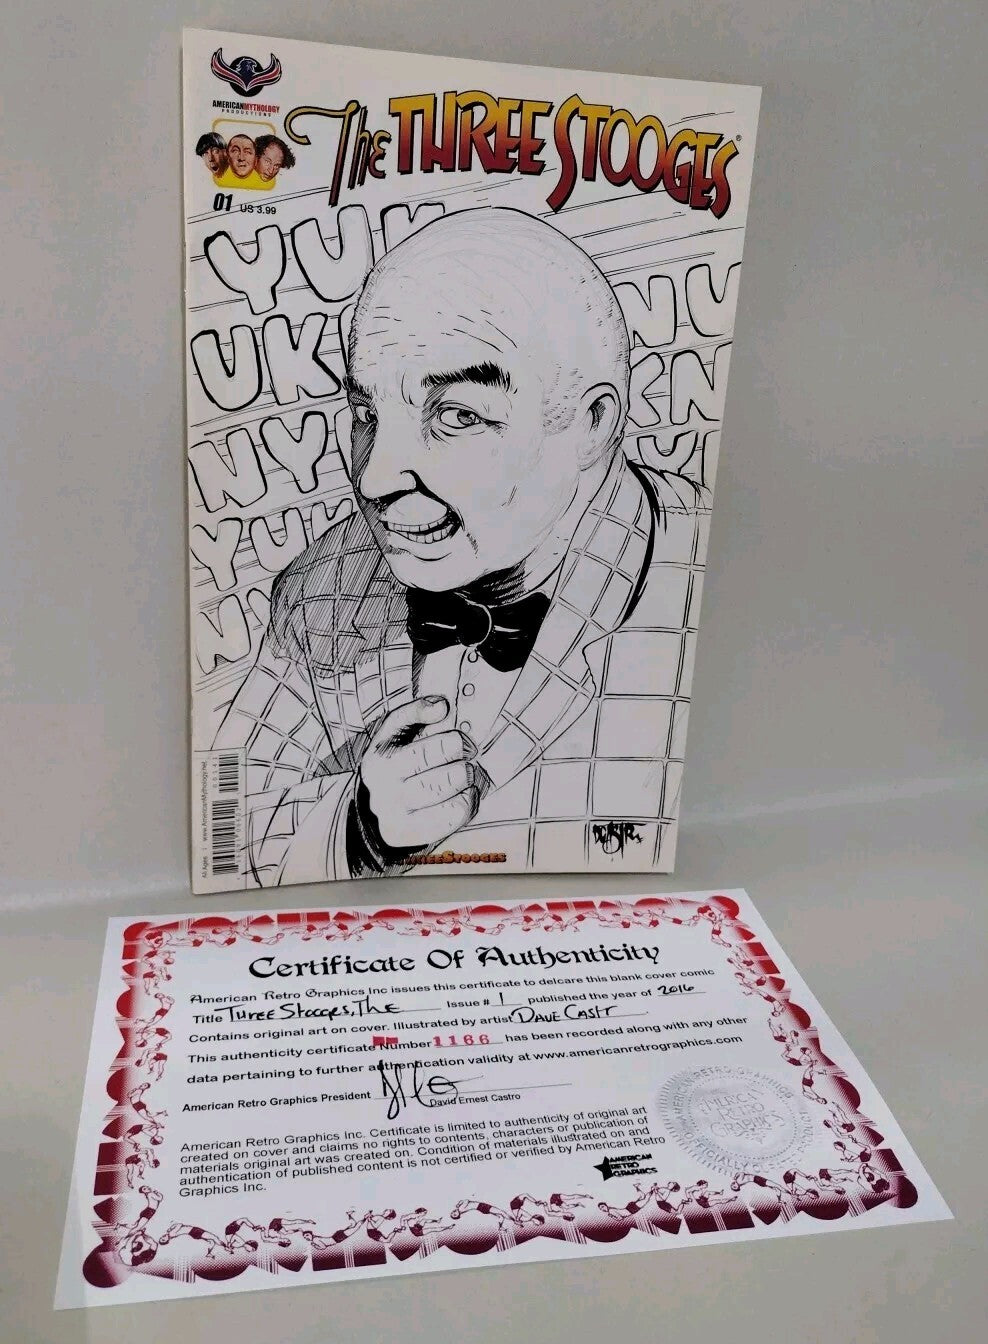 AMERICAN MYTHOLOGY
PRODUCTIONS
The THREE STOOGES®
01 US 3.99
YUK
UK
NY
YUK
NY
NU
KN
YU
All Ages | www.AmericanMythology.net
THREE STOOGES
Certificate Of Authenticity
American Retro Graphics Inc issues this certificate to delcare this blank cover comic
Title Three Stooges, The Issue # 1 published the year of 2016
Contains original art on cover. Illustrated by artist Dave Castr
This authenticity certificate Number 1166 has been recorded along with any other
data pertaining to further authentication validity at www.americanretrographics.com
American Retro Graphics President
David Ernest Castro
American Retro Graphics Inc. Certificate is limited to authenticity of original art
created on cover and claims no rights to contents, characters or publication of
materials original art was created on. Condition of materials illustrated on and
authentication of published content is not certified or verified by American Retro
Graphics Inc.
AMERICAN
RETRO
GRAPHICS
AMERICAN RETRO GRAPHICS